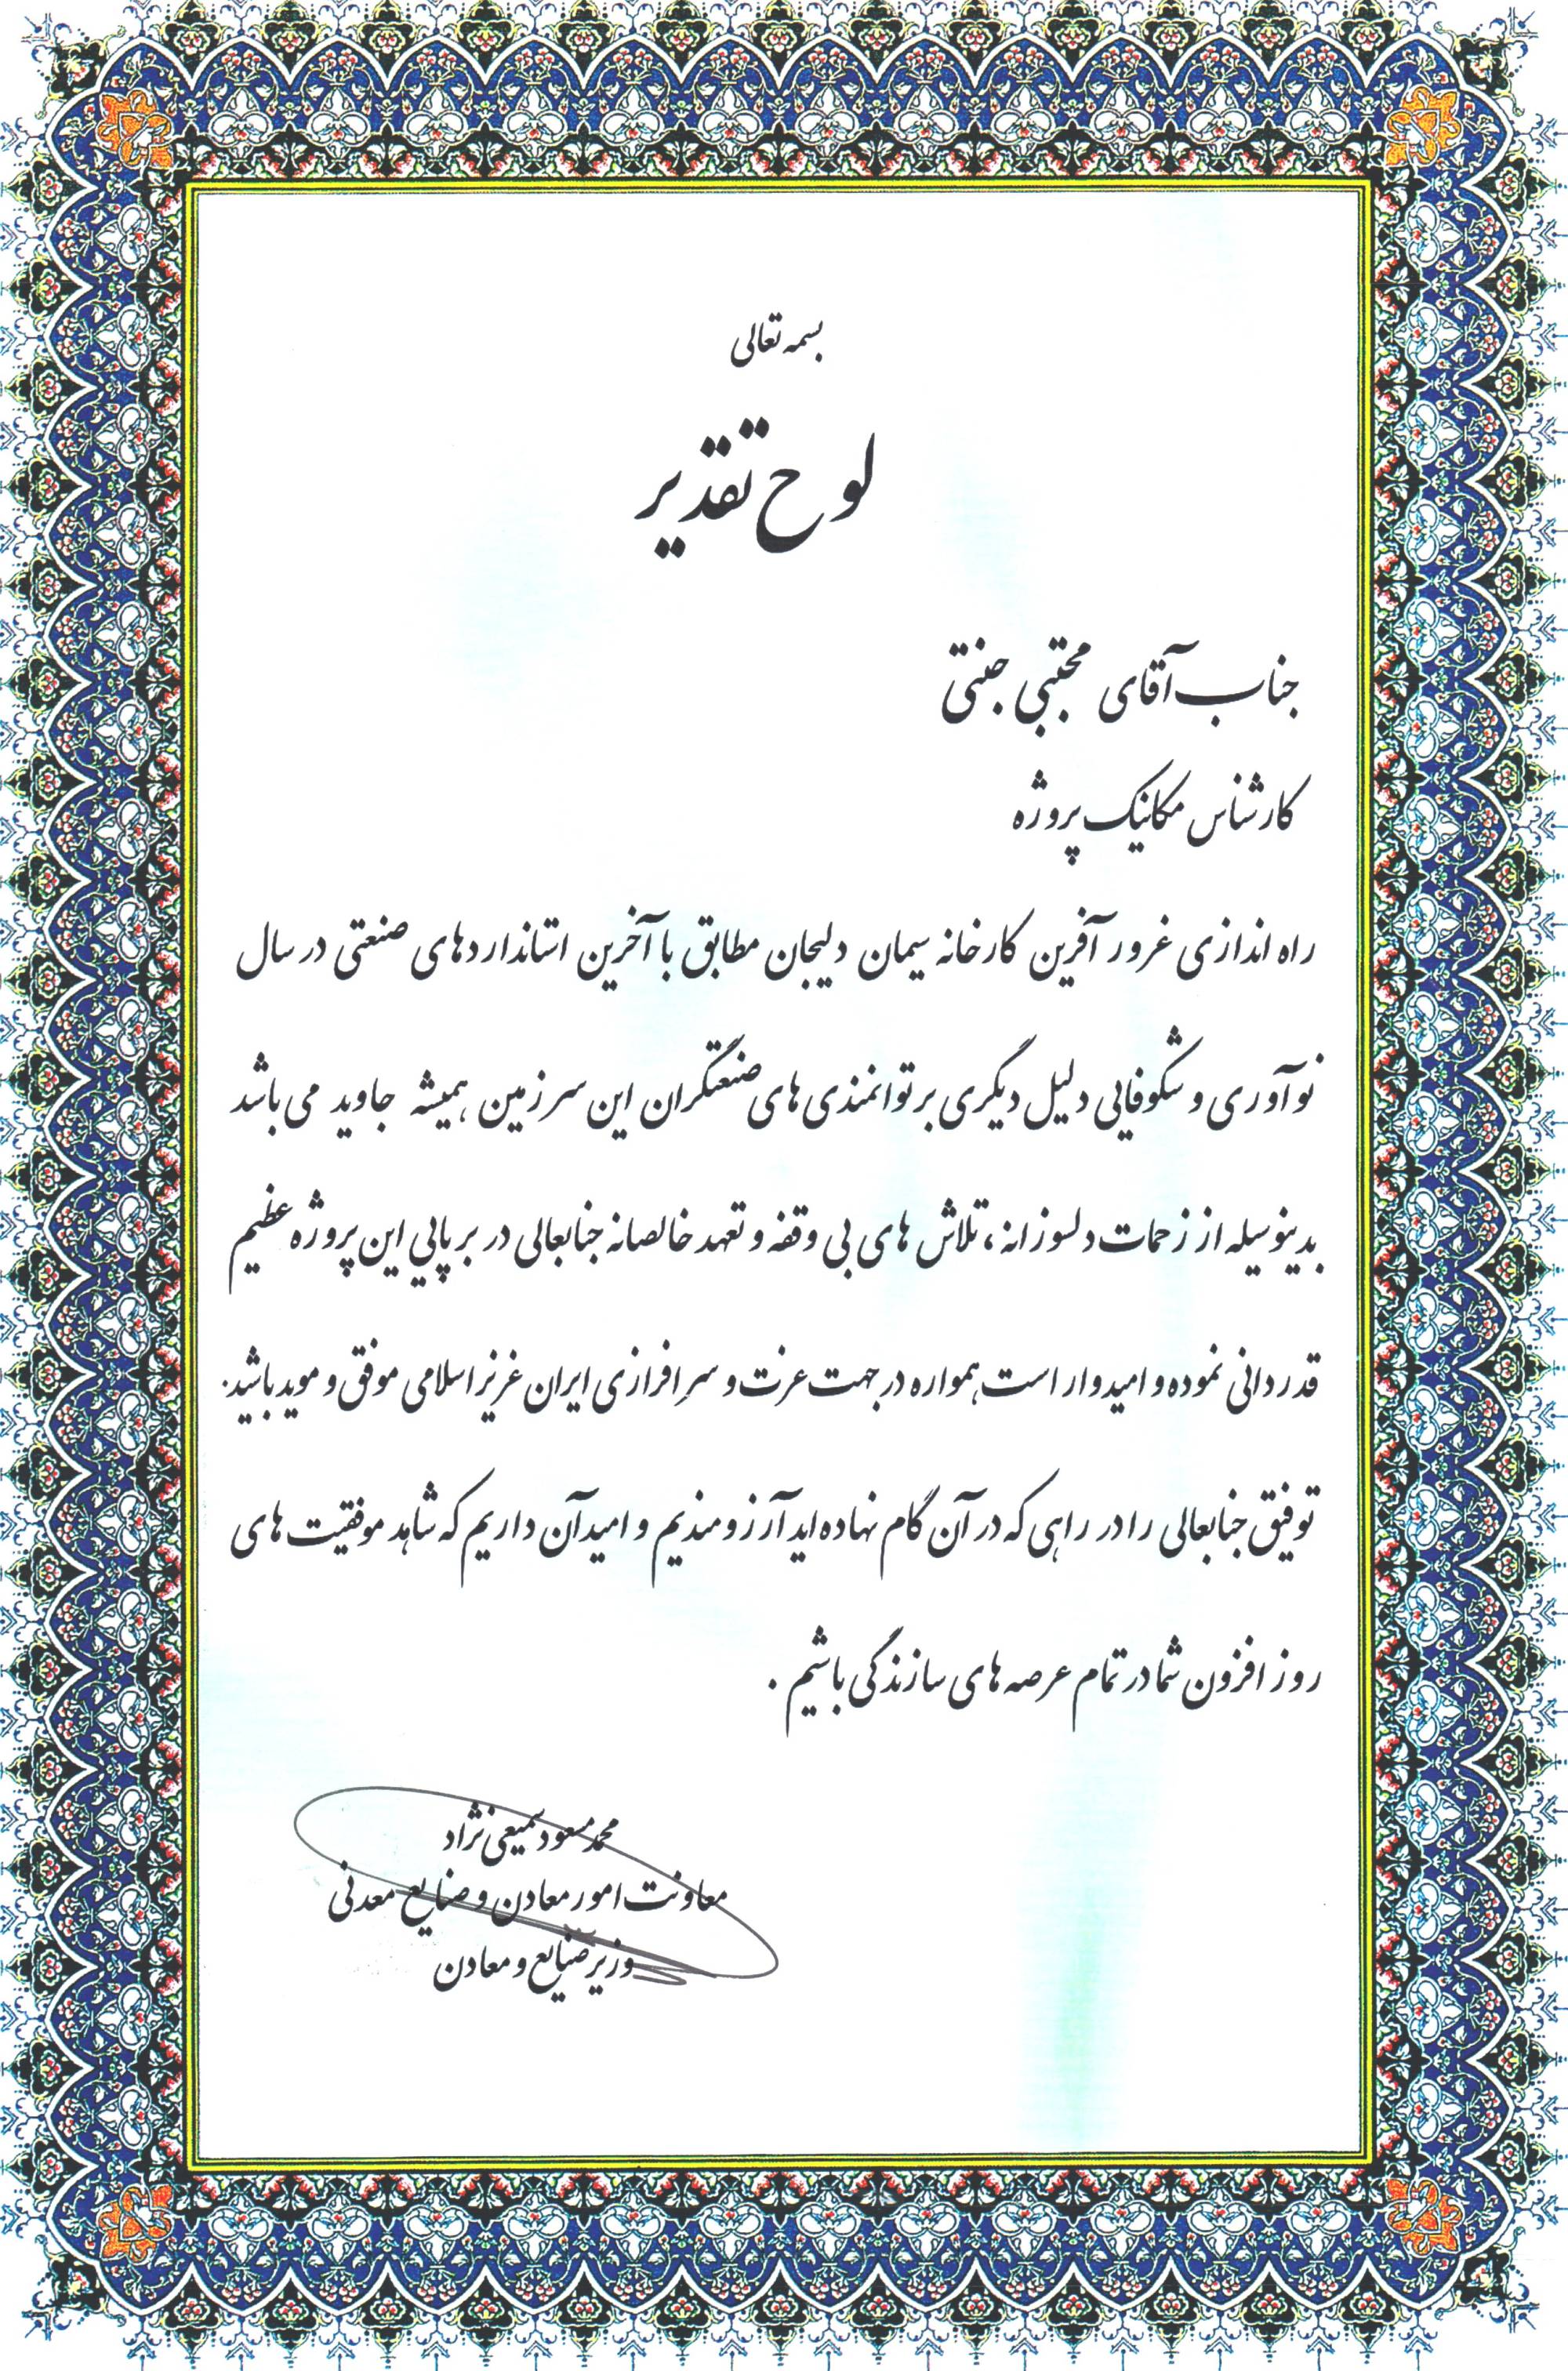 بسمه تعالی
لوح تقدیر
جناب آقای مجتبی جنتی
کارشناس مکانیک پروژه
راه اندازی غرور آفرین کارخانه سیمان دلیجان مطابق با آخرین استانداردهای صنعتی در سال
نوآوری و شکوفایی دلیل دیگری بر توانمندی های صنعتگران این سرزمین همیشه جاوید می باشد
بدینوسیله از زحمات دلسوزانه، تلاش های بی وقفه و تعهد خالصانه جنابعالی در برپایی این پروژه عظیم
قدردانی نموده و امیدوار است همواره در جهت عزت و سرافرازی ایران عزیز اسلامی موفق و موید باشید.
توفیق جنابعالی را در راهی که در آن گام نهاده اید آرزومندیم و امید آن داریم که شاهد موفقیت های
روز افزون شما در تمام عرصه های سازندگی باشیم .
محمد مسعود سمیعی نژاد
معاونت امور معادن و صنایع معدنی
وزیر صنایع و معادن